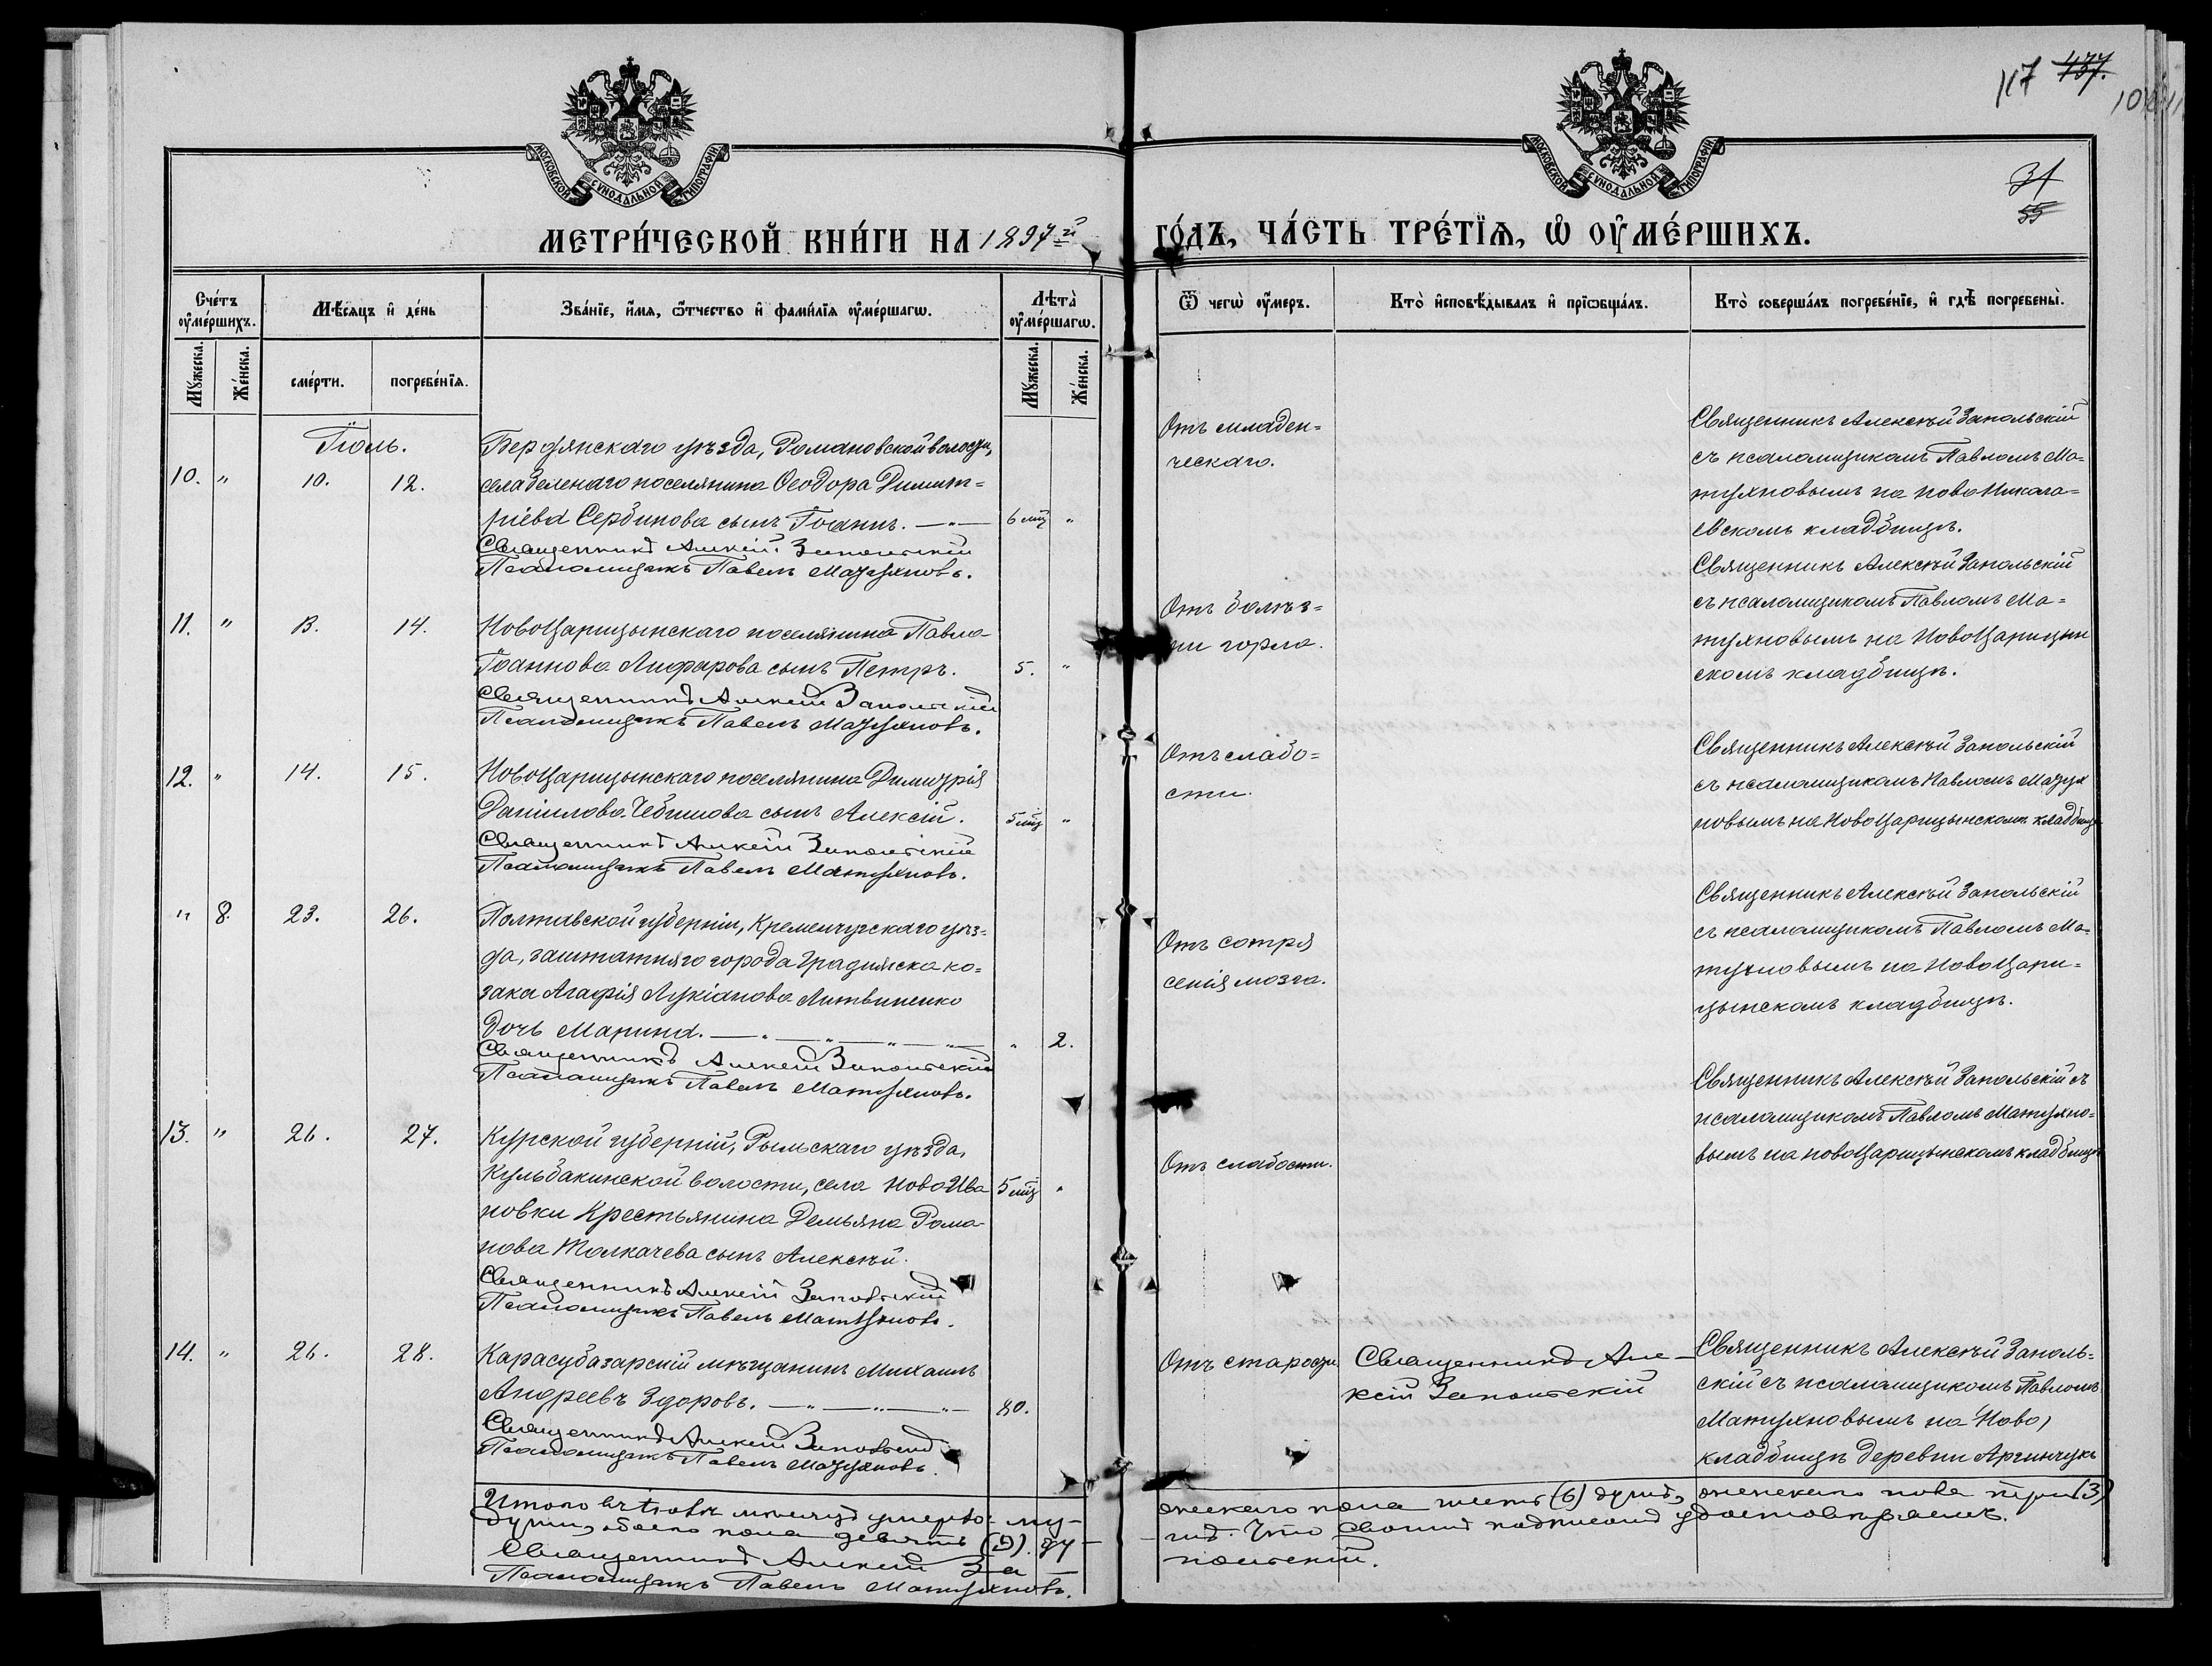 117 437.
31
55
МОСКОВСКОЙ СѴНОДАЛЬНОЙ ТИПОГРАФІИ
МОСКОВСКОЙ СѴНОДАЛЬНОЙ ТИПОГРАФІИ
МЕТРИ́ЧЕСКОЙ КНИ́ГИ НА 1897й
ГО́ДЪ, ЧА́СТЬ ТРЕ́ТЇѦ, Ѡ҆ ОУ҆МЕ́РШИХЪ.
Сче́тъ оу҆ме́ршихъ.
Мѣ́сяцъ и҆ де́нь
Зва́нїе, и҆́мя, ѻ҆́тчество и҆ фами́лїя оу҆ме́ршагѡ.
Лѣта̀ оу҆ме́ршагѡ.
Ѿ чегѡ̀ оу҆́меръ.
Кто̀ и҆сповѣ́дывалъ и҆ прїѡбща́лъ.
Кто̀ соверша́лъ погребе́нїе, и҆ гдѣ̀ погребены̀.
Му́жеска.
Же́нска.
сме́рти.
погребе́нїя.
Му́жеска.
Же́нска.
Іюль.
10. " 10. 12.
Бердянскаго уѣзда, Романовской волости,
села Зеленаго поселянина Ѳеодора Димит=
ріева Сербинова сынъ Іоаннъ. 6 мц "
Священникъ Алексій Запольскій
Псаломщикъ Павелъ Матухновъ.
Отъ младен=
ческаго.
Священникъ Алексѣй Запольскій
съ псаломщикомъ Павломъ Ма=
тухновымъ на Ново Никола=
евскомъ кладбищѣ.
11. " 13. 14.
НовоЦарицынскаго поселянина Павла
Іоаннова Лифарова сынъ Петръ. 5. "
Священникъ Алексій Запольскій
Псаломщикъ Павелъ Матухновъ.
Отъ болѣз=
ни горла.
Священникъ Алексѣй Запольскій
съ псаломщикомъ Павломъ Ма=
тухновымъ на НовоЦарицын
скомъ кладбищѣ.
12. " 14. 15.
НовоЦарицынскаго поселянина Димитрія
Даніилова Чебишова сынъ Алексій. 5 мц "
Священникъ Алексій Запольскій
Псаломщикъ Павелъ Матухновъ.
Отъ слабо=
сти.
Священникъ Алексѣй Запольскій
съ псаломщикомъ Павломъ Матух
новымъ на НовоЦарицынскомъ кладбищѣ
" 8. 23. 26.
Полтавской губерніи, Кременчугскаго уѣз=
да, заштатняго города Градижска ко=
зака Агафія Лукіанова Литвиненко
дочь Марина. " 2.
Священникъ Алексій Запольскій
Псаломщикъ Павелъ Матухновъ.
Отъ сотря
сенія мозга.
Священникъ Алексѣй Запольскій
съ псаломщикомъ Павломъ Ма=
тухновымъ на НовоЦари=
цынскомъ кладбищѣ.
13. " 26. 27.
Курской губерніи, Рыльскаго уѣзда,
Кульбакинской волости, села НовоИва 5 мц "
новки Крестьянина Демьяна Рома-
нова Толкачева сынъ Алексѣй.
Священникъ Алексій Запольскій
Псаломщикъ Павелъ Матухновъ.
Отъ слабости.
Священникъ Алексѣй Запольскій съ
псаломщикомъ Павломъ Матухно=
вымъ на НовоЦарицынскомъ кладбищѣ
14. " 26. 28.
Карасубазарскій мѣщанинъ Михаилъ
Андреевъ Здоровъ. 80.
Священникъ Алексій Запольскій
Псаломщикъ Павелъ Матухновъ.
Отъ старости
Священникъ Але-
ксій Запольскій
Священникъ Алексѣй Заполь=
скій съ псаломщикомъ Павломъ
Матухновымъ на Ново)
кладбищѣ деревни Аргинчукъ
Итого въ іюлѣ мѣсяцѣ умерло му-
жескаго пола шесть (6) душъ, женскаго пола три (3)
души, обоего пола девять (9). ду-
шъ. Что своимъ подписомъ удостовѣряемъ.
Священникъ Алексій За-
польскій.
Псаломщикъ Павелъ Матухновъ.